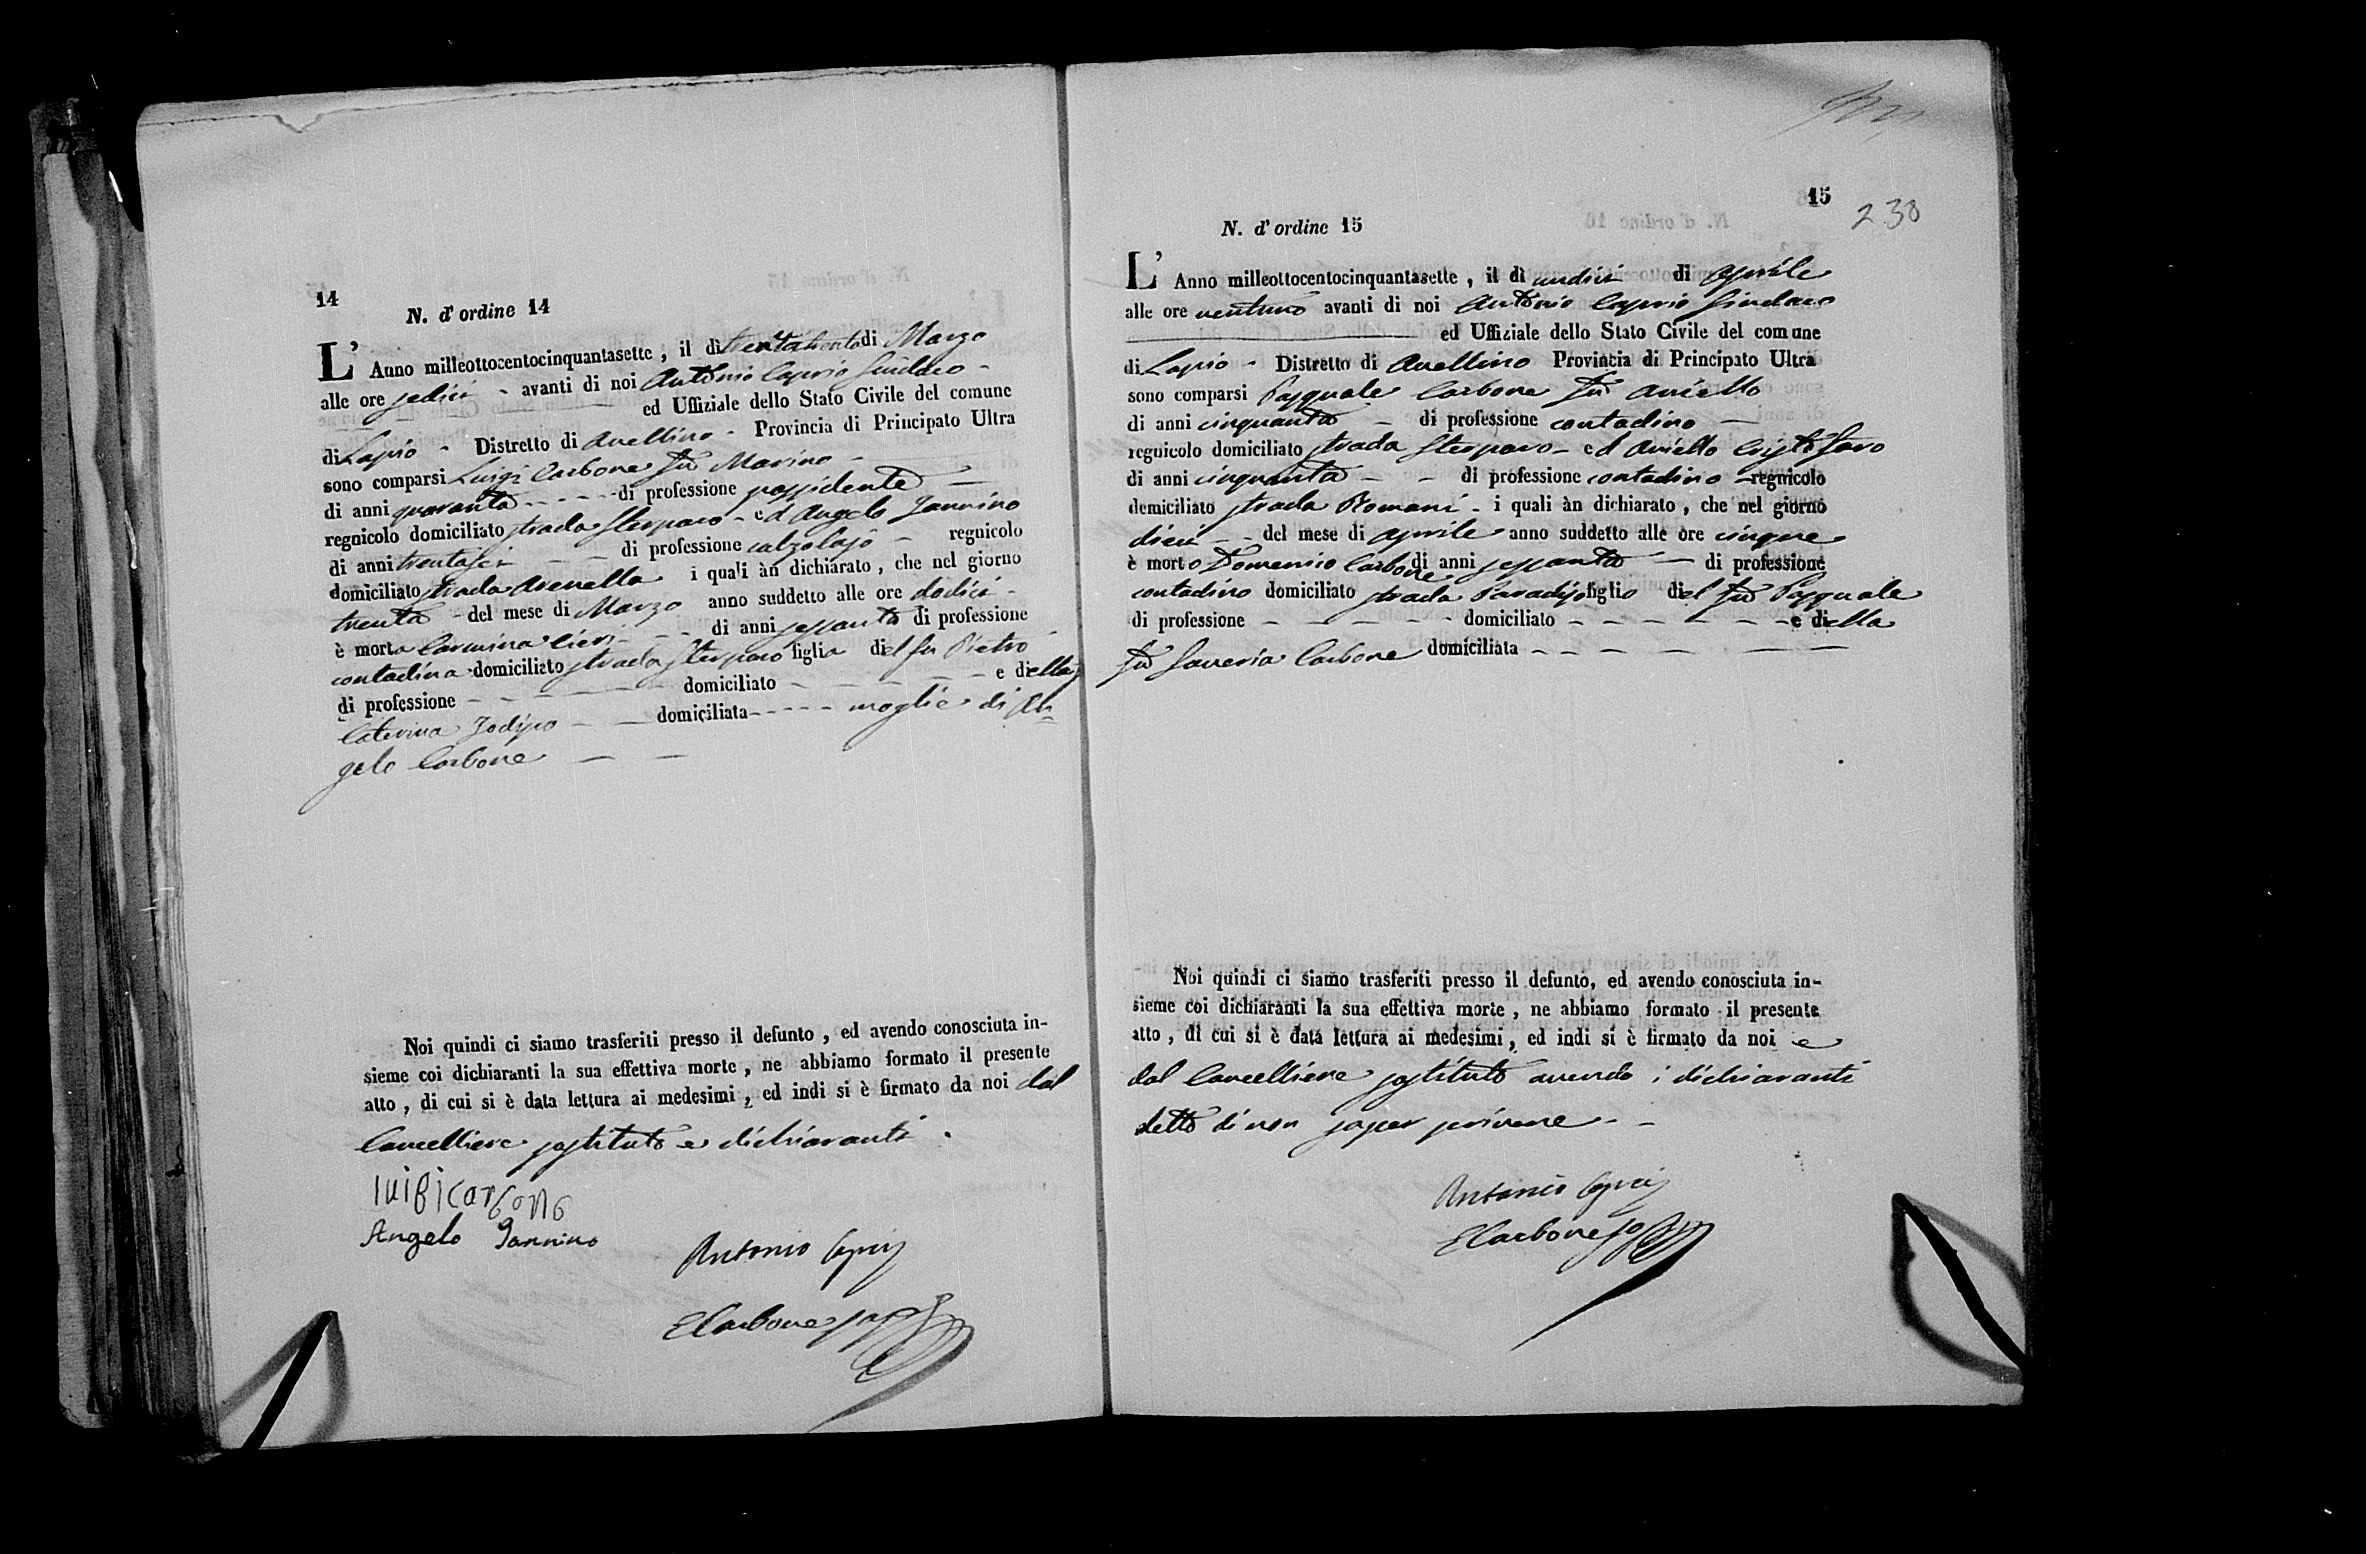 14
N. d' ordine 14
L' Anno milleottocentocinquantasette, il dì di Marzo
alle ore sedici - avanti di noi Antonio Caprio Sindaco -
ed Uffiziale dello Stato Civile del comune
di Lapio - Distretto di Avellino - Provincia di Principato Ultra
sono comparsi Luigi Carbone fu Marino -
di anni quaranta - - - - - di professione possidente -
regnicolo domiciliato strada Sterparo - ed Angelo Jannino
di anni trentasei - - di professione calzolajo - regnicolo
domiciliato strada i quali àn dichiarato, che nel giorno
trenta - del mese di Marzo anno suddetto alle ore dodici -
è morta Carmina Cieri - - - di anni sessanta di professione
contadina domiciliato strada Sterparo figlia del fu Pietro
di professione - - - - - domiciliato - - - - - e della
Caterina - - domiciliata - - - - - moglie di An=
gelo Carbone - -
Noi quindi ci siamo trasferiti presso il defunto, ed avendo conosciuta in-
sieme coi dichiaranti la sua effettiva morte, ne abbiamo formato il presente
atto, di cui si è data lettura ai medesimi, ed indi si è firmato da noi dal
Cancelliere sostituto e dichiaranti.
luigi carbone
Angelo Jannino
Antonio Caprio
E Carbone
15
230
N. d' ordine 15
L' Anno milleottocentocinquantasette, il dì undici di Aprile
alle ore ventuno avanti di noi Antonio Caprio Sindaco
ed Uffiziale dello Stato Civile del comune
di Lapio - Distretto di Avellino Provincia di Principato Ultra
sono comparsi Pasquale Carbone fu Aniello
di anni cinquanta - - di professione contadino -
regnicolo domiciliato strada Sterparo - ed Aniello Cristofaro
di anni cinquanta - - di professione contadino - regnicolo
domiciliato strada Romani - i quali àn dichiarato, che nel giorno
dieci - - del mese di Aprile anno suddetto alle ore cinque
è morto Domenico Carbone di anni sessanta - di professione
contadino domiciliato strada Paradiso figlio del fu Pasquale
di professione - - - - - domiciliato - - - - - e della
fu Saveria Carbone domiciliata - - - - - -
Noi quindi ci siamo trasferiti presso il defunto, ed avendo conosciuta in-
sieme coi dichiaranti la sua effettiva morte, ne abbiamo formato il presente
atto, di cui si è data lettura ai medesimi, ed indi si è firmato da noi e
dal Cancelliere sostituto avendo i dichiaranti
detto di non saper scrivere - -
Antonio Caprio
E Carbone